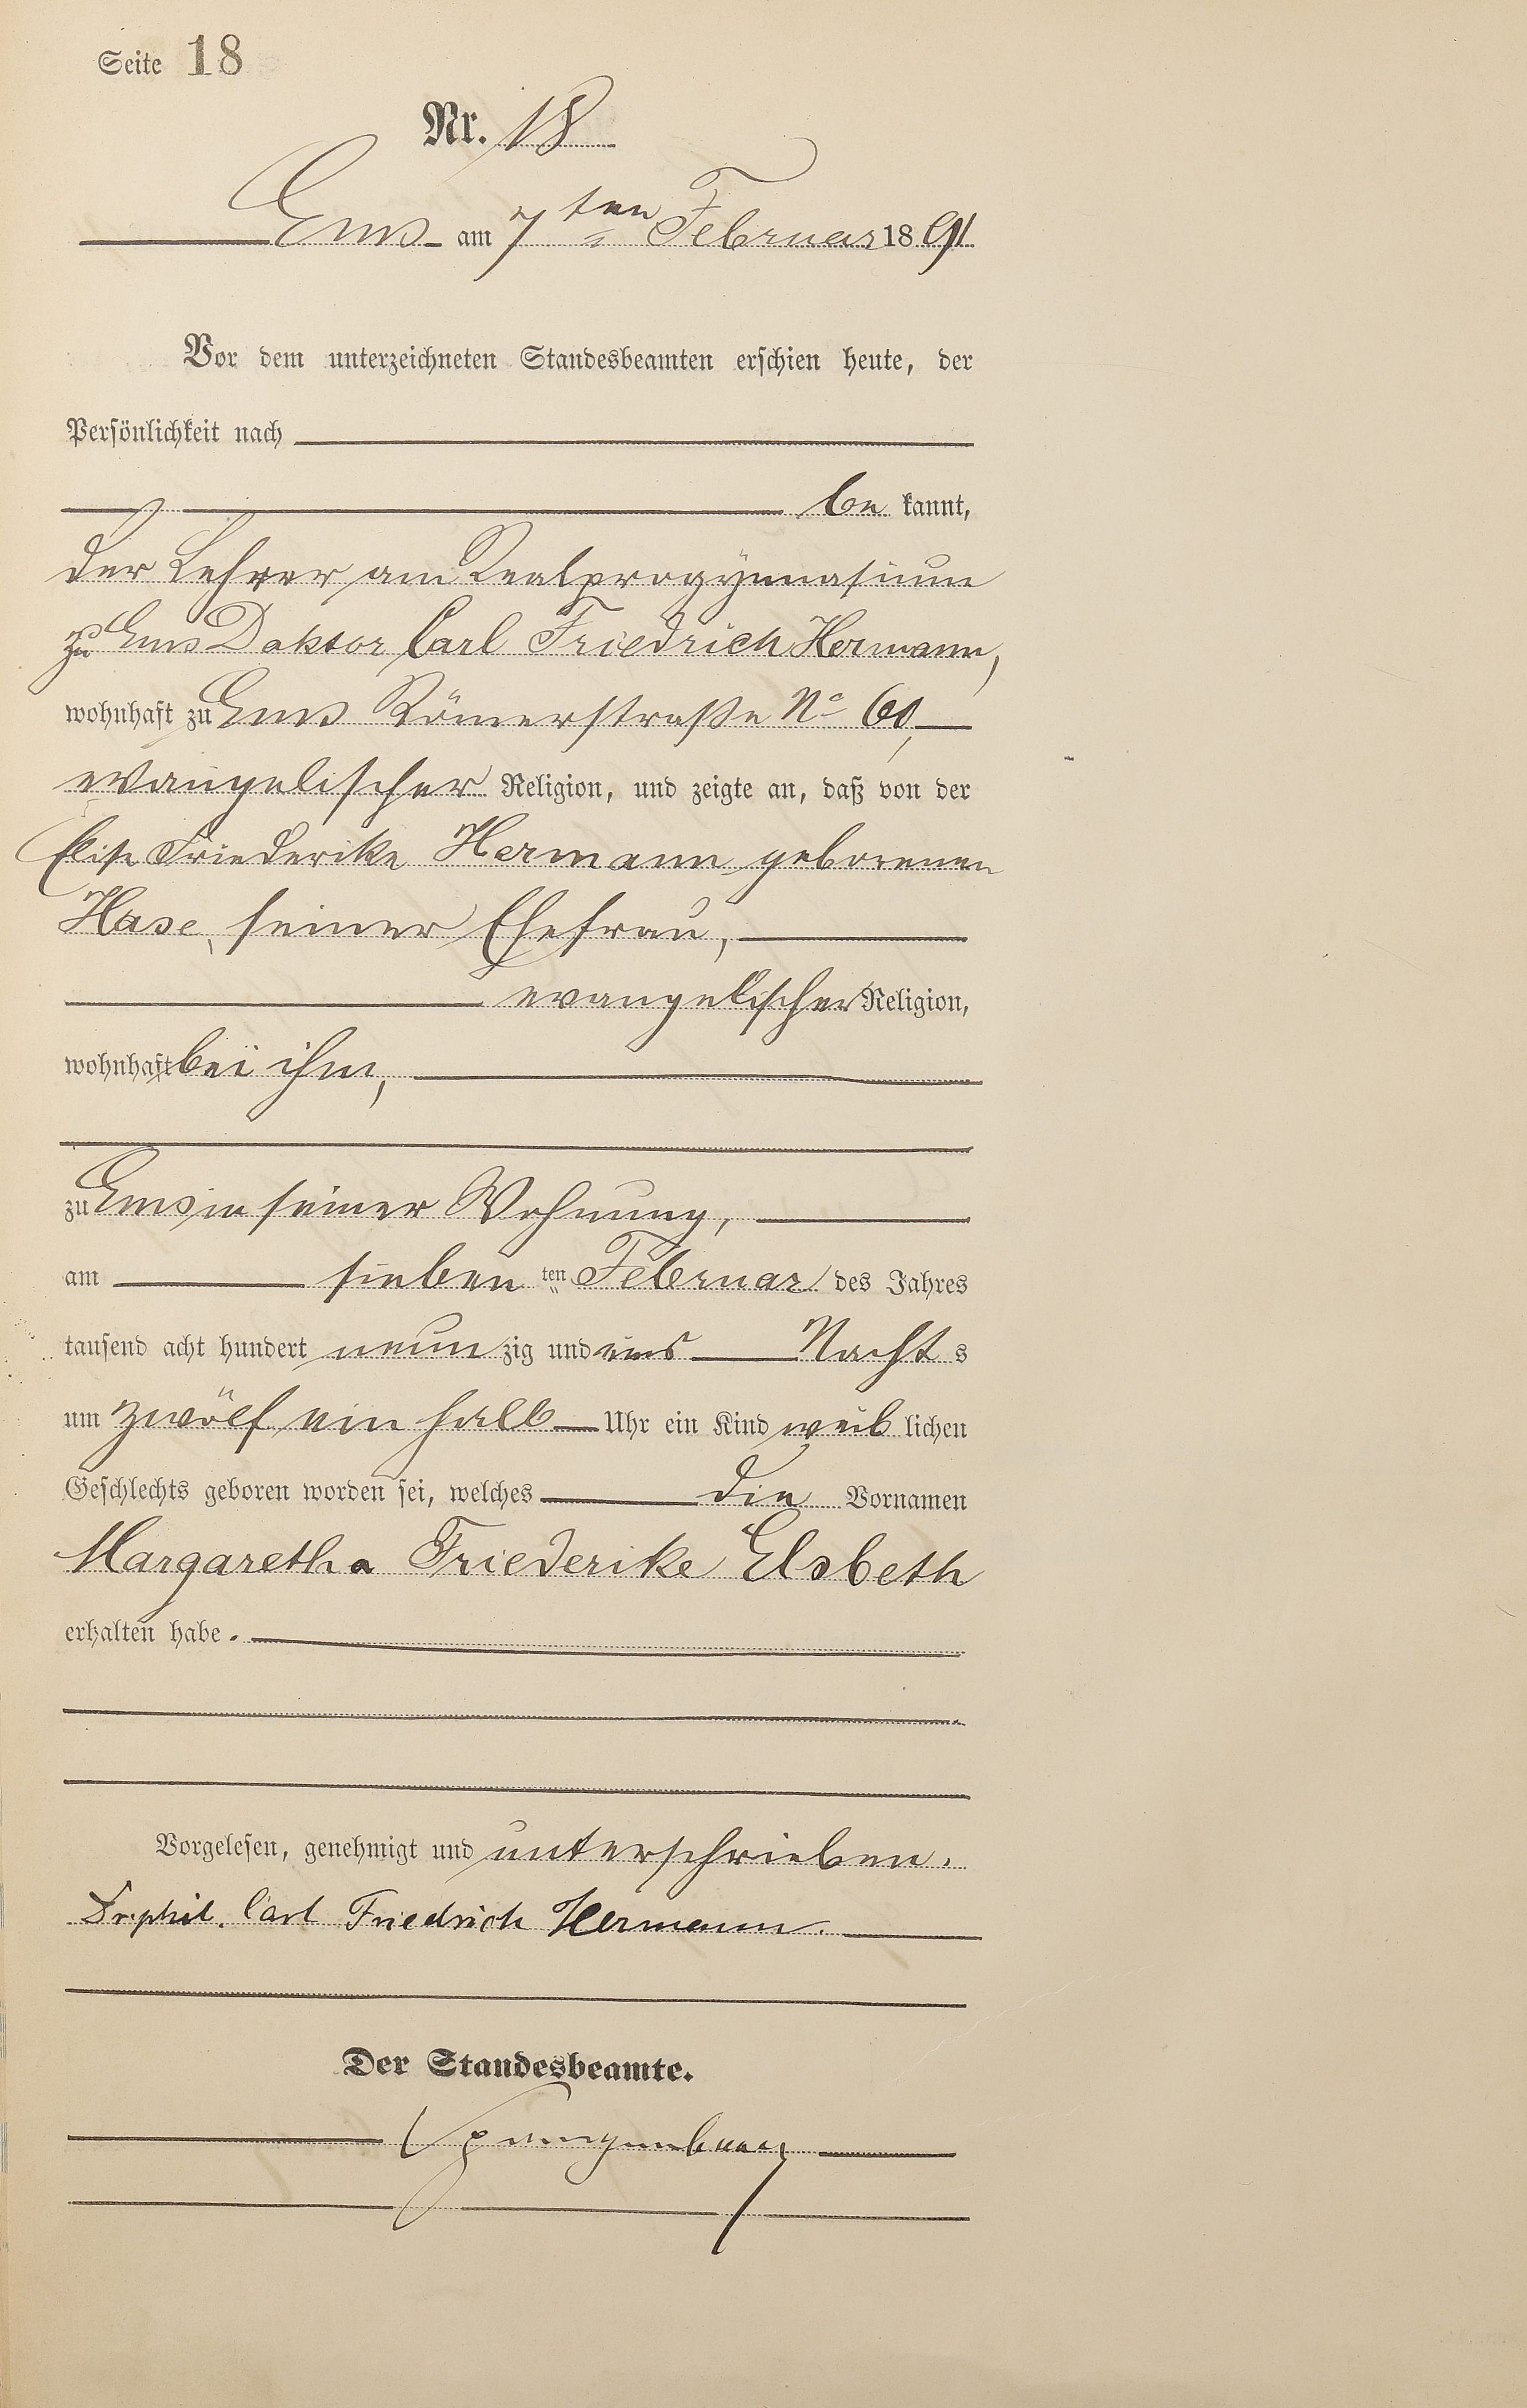 Seite 18
Nr. 18
Ems am 7ten Februar 1891
Vor dem unterzeichneten Standesbeamten erschien heute, der
Persönlichkeit nach
be kannt,
der Lehrer am Realprogymnasium
zu Ems Doktor Carl Friedrich Hermann,
wohnhaft zu Ems Römerstraße No 60,
evangelischer Religion, und zeigte an, daß von der
Elise Friederike Hermann geborenen
Hase, seiner Ehefrau,
evangelischer Religion,
wohnhaft bei ihm,
zu Ems in seiner Wohnung,
am sieben ten Februar des Jahres
tausend acht hundert neun zig und eins Nacht s
um zwölf ein halb Uhr ein Kind weib lichen
Geschlechts geboren worden sei, welches die Vornamen
Margaretha Friederike Elsbeth
erhalten habe.
Vorgelesen, genehmigt und unterschrieben.
Dr. phil. Carl Friedrich Hermann.
Der Standesbeamte.